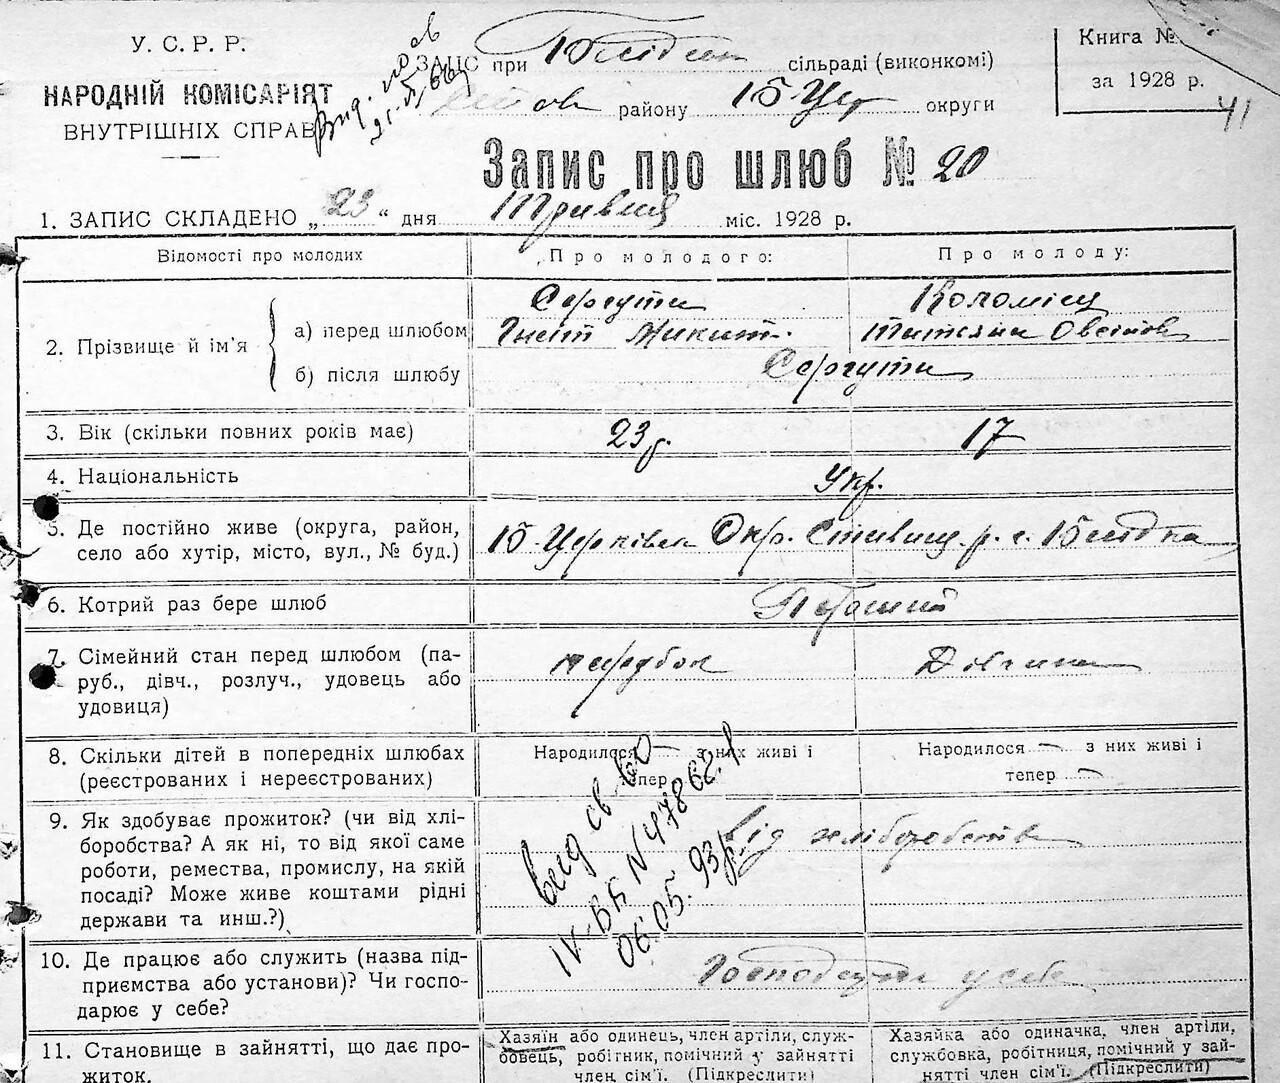 У. С. Р. Р.
НАРОДНІЙ КОМІСАРІЯТ
ВНУТРІШНІХ СПРАВ
ЗАПІС при сільраді (виконкомі)
району Б Цер округи
Книга №
за 1928 р.
41
Запис про шлюб № 20
1. ЗАПИС СКЛАДЕНО „23“ дня Травня міс. 1928 р.
Відомості про молодих
Про молодого:
Про молоду:
2. Прізвище й ім'я
а) перед шлюбом
Сергути
Гнат Микит.
Коломієц
Татьяна Овсіїов
б) після шлюбу
Сергути
3. Вік (скільки повних років має)
23 р.
17
4. Національність
Укр.
5. Де постійно живе (округа, район,
село або хутір, місто, вул., № буд.)
Б-Церківськ Окр. Ставищ. р. с.
6. Котрий раз бере шлюб
Перший
7. Сімейний стан перед шлюбом (па-
руб., дівч., розлуч., удовець або
удовиця)
парубок
Дівчина
8. Скільки дітей в попередніх шлюбах
(реєстрованих і нереєстрованих)
Народилося — з них живі і
тепер —
Народилося — з них живі і
тепер —
9. Як здобуває прожиток? (чи від хлі-
боробства? А як ні, то від якої саме
роботи, ремества, промислу, на якій
посаді? Може живе коштами рідні
держави та инш.?)
Від хліборобства
IV-БК N 478862
06.05.93р.
10. Де працює або служить (назва під-
приємства або установи)? Чи госпо-
дарює у себе?
Господарює у себе
11. Становище в зайнятті, що дає про-
житок.
Хазяїн або одинець, член артілі, служ-
бовець, робітник, помічний у зайнятті
член сім'ї. (Підкреслити)
Хазяйка або одиначка, член артіли,
службовка, робітниця, помічний у зай-
нятті член сім'ї. (Підкреслити)